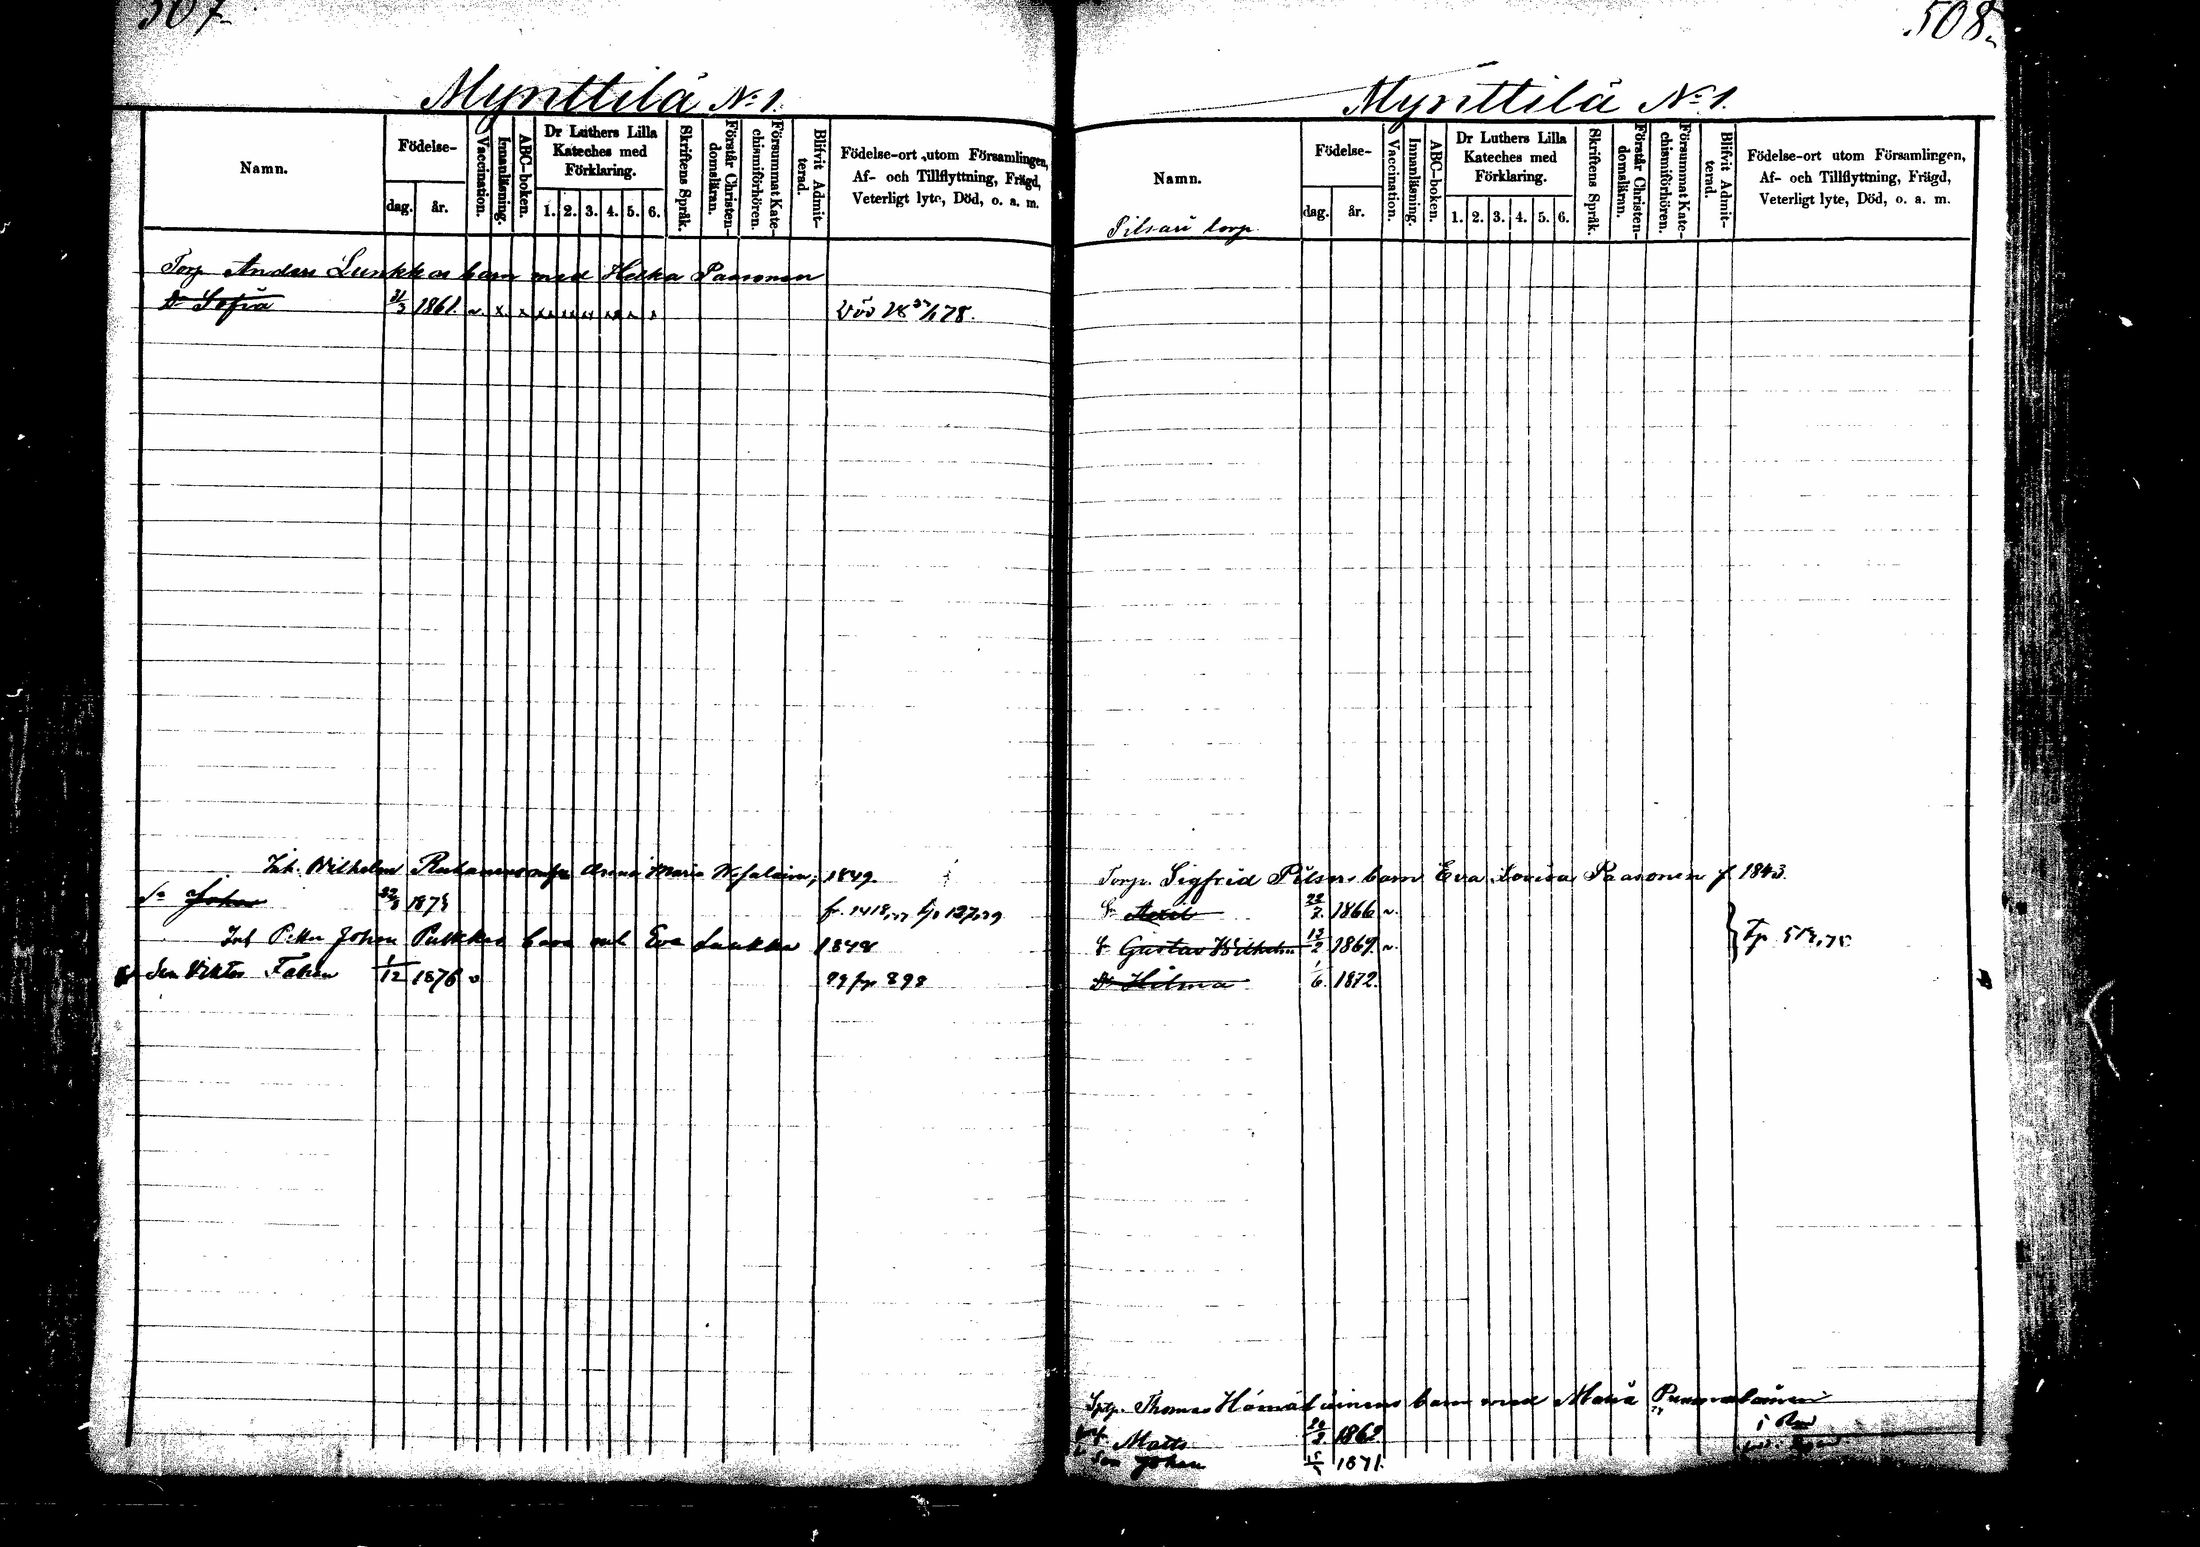 507.
Mynttilä No 1.
Namn.
Födelse-
dag. år.
Vaccination.
Innanläsning.
ABC-boken.
Dr Luthers Lilla
Kateches med
Förklaring.
1. 2. 3. 4. 5. 6.
Skriftens Språk.
Förstår Christen-
domsläran.
Försummat Kate-
chismiförhören.
Blifvit Admit-
terad.
Födelse-ort utom Församlingen,
Af- och Tillflyttning, Frägd,
Veterligt lyte, Död, o. a. m.
Torp Anders Lunkkas barn med Helka Paasonen
Dr Sofia 31/3 1861. v. x x
Inh. Wilhelm Anna Maria 1849.
Sn Johan 1875 fr. 1418,77
Inh Petter Johan Pukkas barn med Eva Laukka 1848
Son Viktor Fabian 1/12 1876 v 898
508.
Mynttilä No 1.
Namn.
Födelse-
dag. år.
Vaccination.
Innanläsning.
ABC-boken.
Dr Luthers Lilla
Kateches med
Förklaring.
1. 2. 3. 4. 5. 6.
Skriftens Språk.
Förstår Christen-
domsläran.
Försummat Kate-
chismiförhören.
Blifvit Admit-
terad.
Födelse-ort utom Församlingen,
Af- och Tillflyttning, Frägd,
Veterligt lyte, Död, o. a. m.
Pilsari torp.
Torp. Sigfrid Pilsars barn Eva Lovisa Paasonen f. 1843.
Sn Axel 22/2. 1866 v.
S Gustav Wilhelm 12/2 1869. v.
Dr Hilma 1/6. 1872.
Thomas Hämäläinens barn med Maria Punnalainen
Matts 1862
Son Johan 1871.